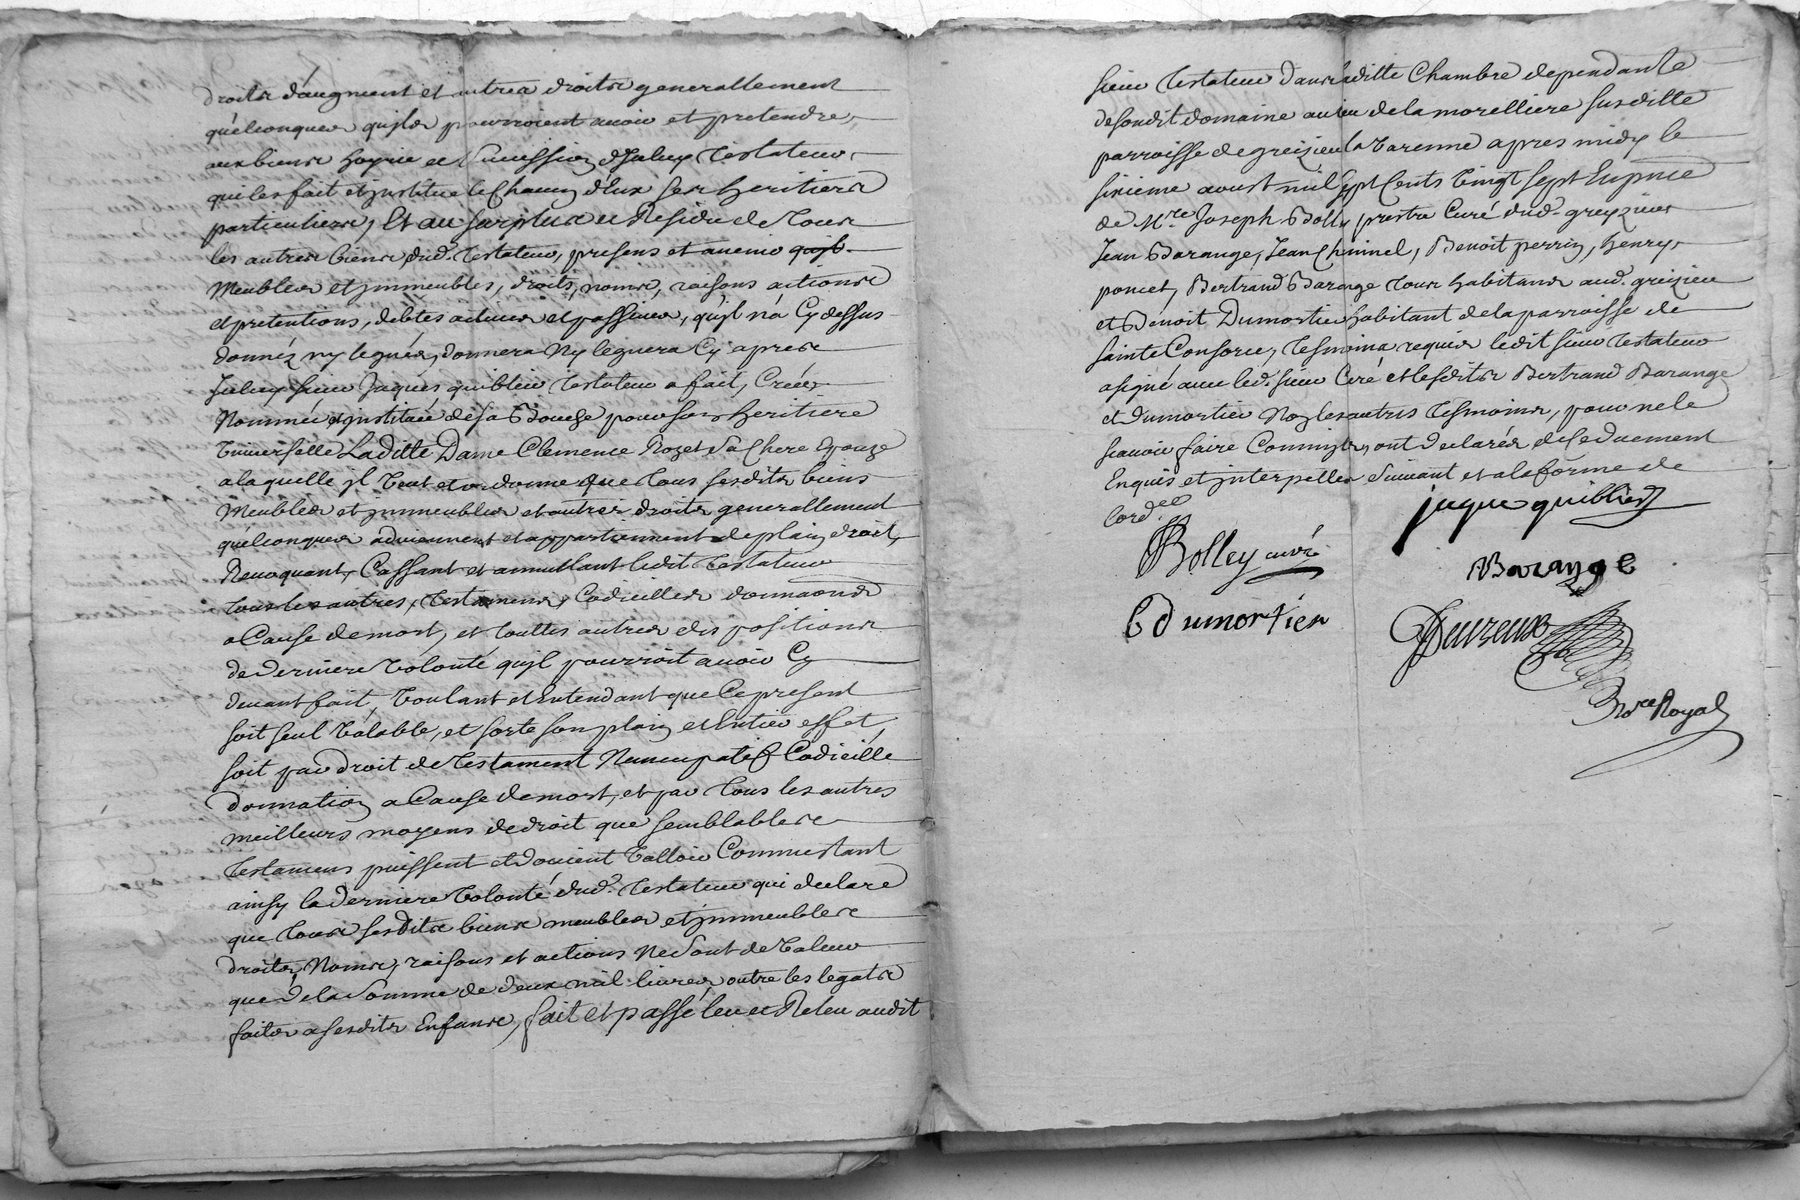 droits d'augment et autres droits generallement
quelconques quils pourroient avoir et pretendre
aux biens hoyrie et Succession dIceluy Testateur
qui les fait et jnstitue le Chacun d'Eux ses heritiers
particuliers, Et au surplus et Residu de Tous
les autres biens dud. Testateur, presens et avenir
Meubles et jmmeubles, droits, noms, raisons actions
et pretentions, debtes actives et passives, quil n'a Cy dessus
donnéz ny leguéz, donnera Ny leguera Cy apres
Jceluy sieur Jaques quiblier Testateur a fait, Créée
Nommée et jnstituée de sa Bouche pour son heritiere
Universelle Laditte Dame Clemence Rozet Sa Chere Epouze
a laquelle jl Veut et ordonne que Tous sesdits biens
Meubles et jmmeubles et autres droits generallement
quelconques adviennent et appartiennent de plain droit,
Revoquant, Cassant et annullant ledit Testateur
tous les autres, Testamens, Codicilles donnaons
a Cause de mort, et touttes autres dispositions
de derniere Volonté quil pourroit avoir Cy
devant fait, Voulant et Entendant que Ce present
soit seul Valable, et sorte son plain et Entier effet,
soit par droit de Testament Nuncupatif Codicille
donnation a Cause de mort, et par Tous les autres
meilleurs moyens de droit que semblables
Testamens puissent et doivent Valloir Comme Etant
ainsy la derniere Volonté dud. Testateur qui declare
que Tous sesdits biens meubles et jmmeubles
droits, Noms, raisons et actions Ne Sont de Valeur
que de la Somme de deux mil livres, outre les legats
faits a sesdits Enfans, fait et passé leu et Releu audit
sieur Testateur dans laditte Chambre dependante
de sondit domaine au lieu de la morelliere susditte
parroisse de greizieu la Varenne apres midy le
sixieme aoust mil sept Cents Vingt sept En p̃nce
de M.re Joseph Bolley prestre Curé dud. greyzieu
Jean Barange, Jean Chninel, Benoit perrin, henry
poncet, Bertrand Barange tous habitans aud. greizieu
et Benoit Dumortier habitant de la parroisse de
sainte Consorce, Tesmoins requis ledit sieur Testateur
a signé avec led. sieur Curé et lesdits Bertrand Barange
et dumortier Non les autres Tesmoins, pour ne le
scavoir faire Comm'ils ont declarés de ce duement
Enquis et jnterpellés Suivant et a la forme de
l'ord.ce
jaque quiblier
Bolley curé
Barange
b dumortier
Deuzeux
N.re Royal